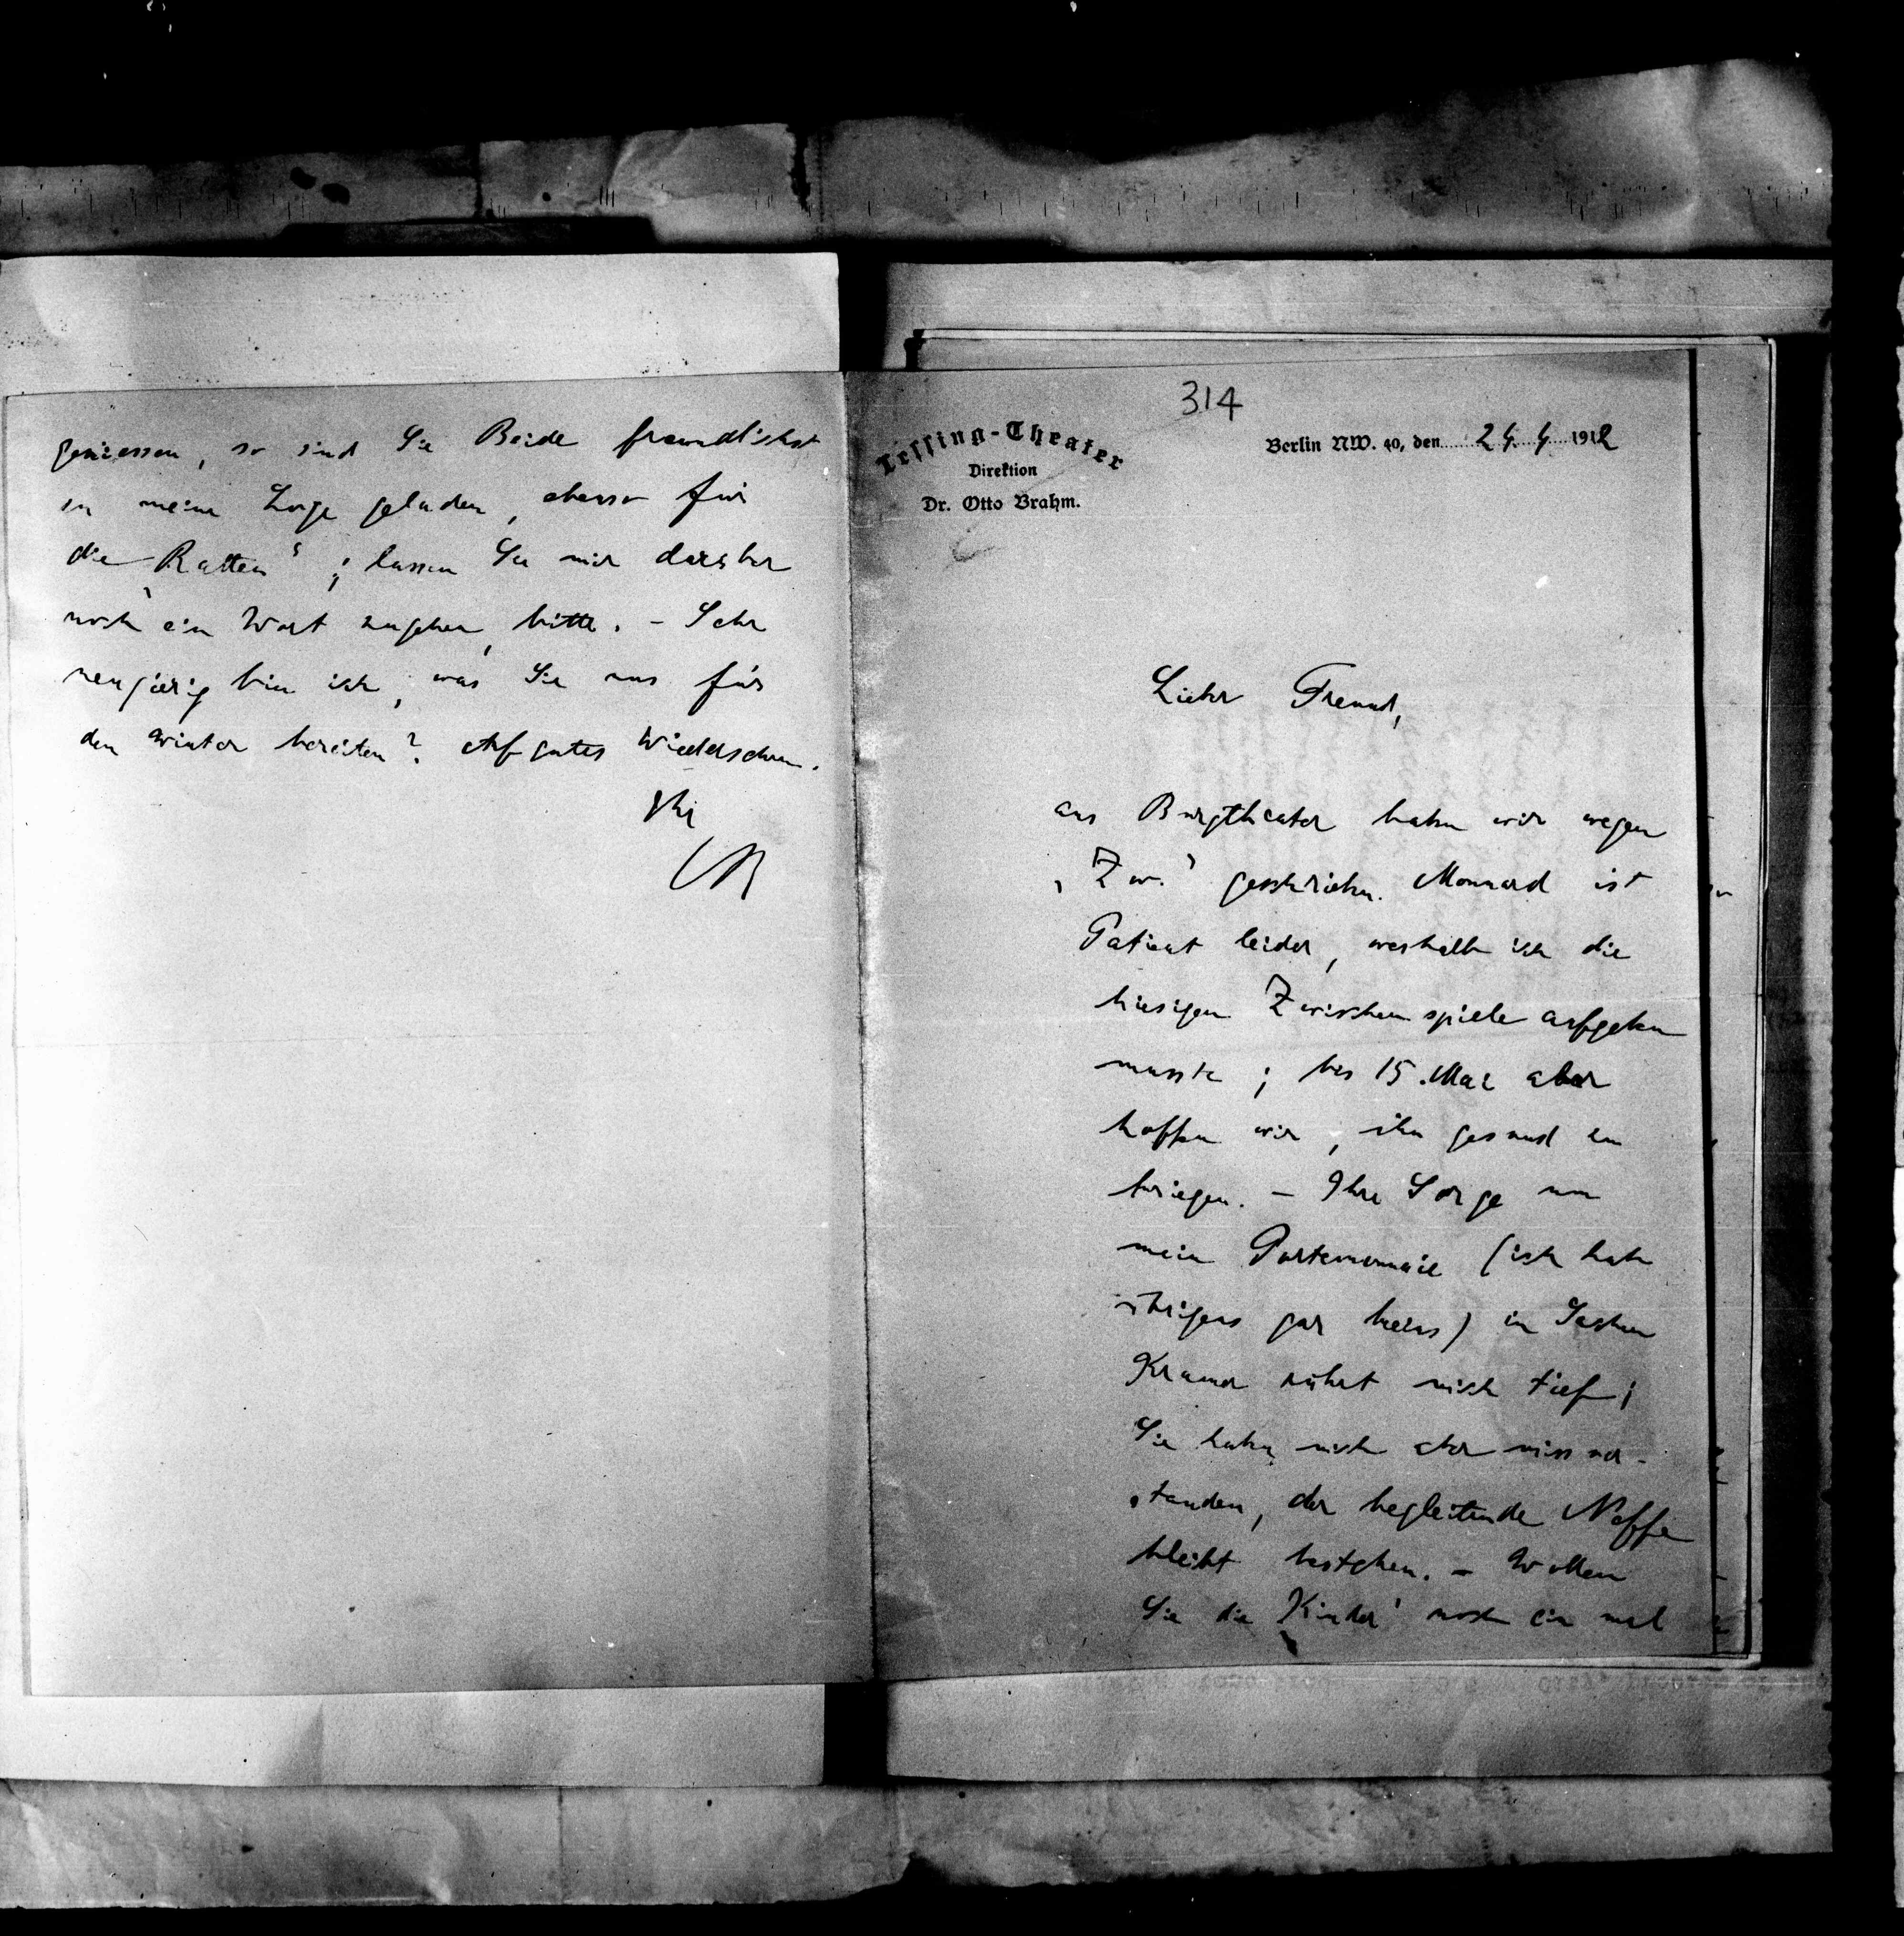 314
Lessing-Theater
Direktion
Dr. Otto Brahm.
Berlin NW. 40, den 24. 4. 1912
Lieber Freund,
ans Burgtheater haben wir wegen
„Zw.“ geschrieben. Monnard ist
Patient leider, weshalb ich die
hiesigen Zwischenspiele aufgeben
musste; bis 15. Mai aber
hoffen wir, ihn gesund zu
kriegen. – Ihre Sorge um
mein Portemonnaie (ich habe
übrigens gar keins) in Sachen
Kramer rührt mich tief;
Sie haben mich aber missver-
standen, der begleitende Neffe
bleibt bestehen. – Wollen
Sie die „Kinder“ noch ein mal
geniessen, so sind Sie Beide freundlichst
in meine Loge geladen, ebenso für
die „Ratten“; lassen Sie mir darüber
noch ein Wort zugehen, bitte. – Sehr
neugierig bin ich, was Sie uns für
den Winter bereiten? Auf gutes Wiedersehen.
Ihr
OB